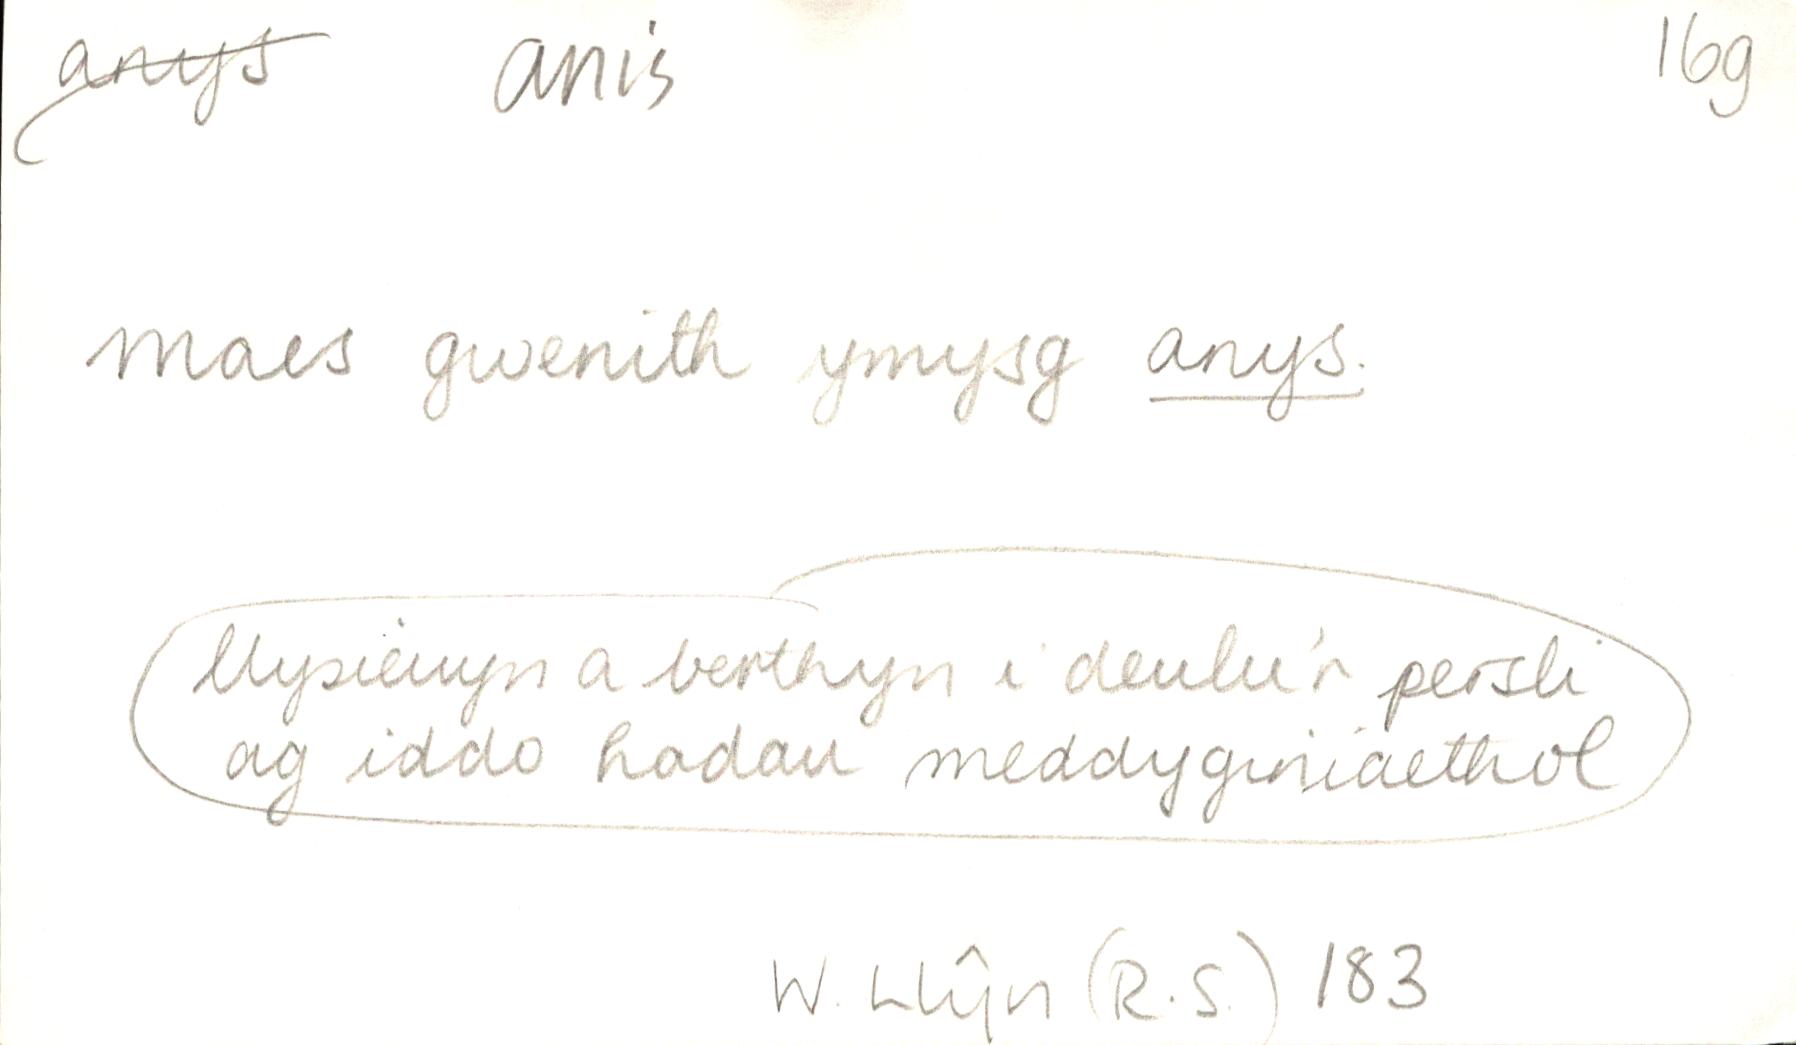 anys anis 16g
maes gwenith ymysg anys.
llysieuyn a berthyn i deulu'r persli
ag iddo hadau meddyginiaethol
W. Llŷn (R.S.) 183